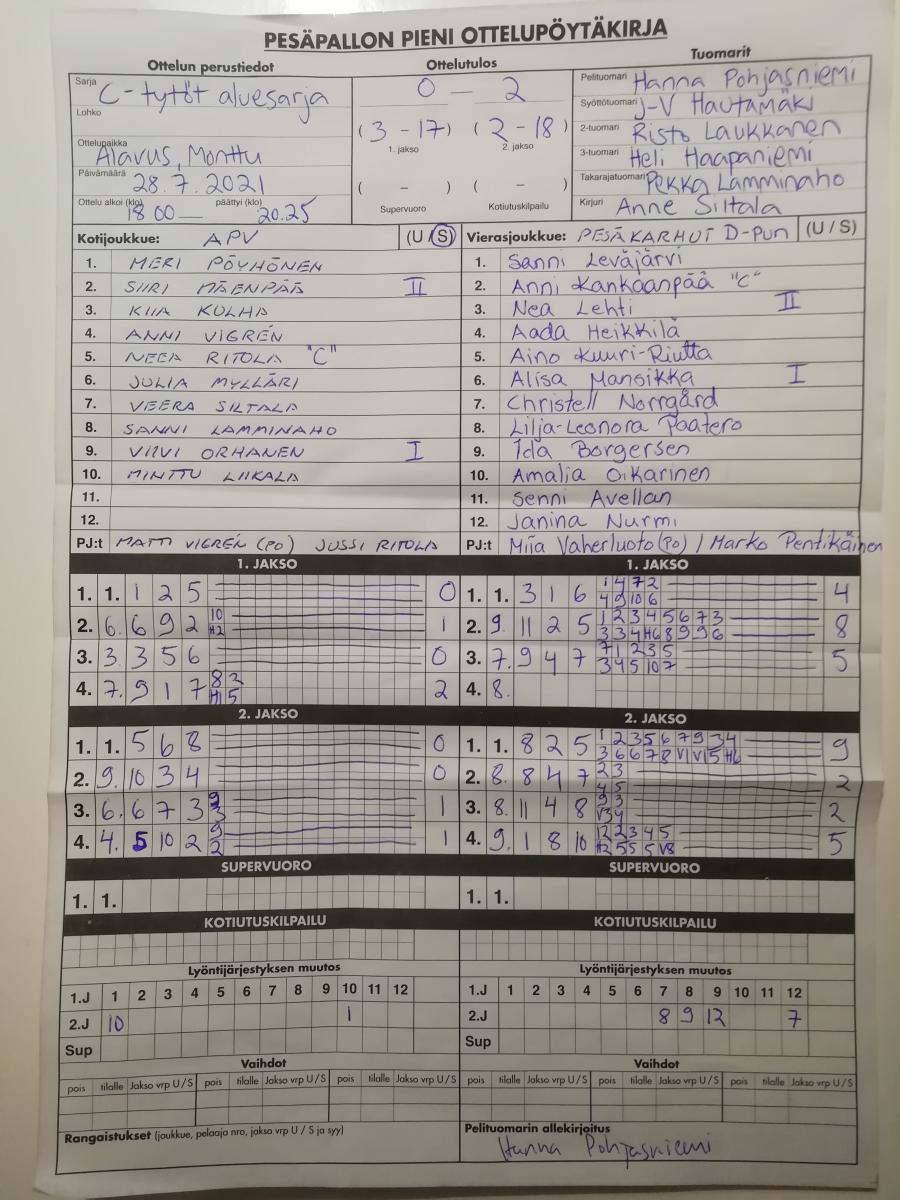 PESÄPALLON PIENI OTTELUPÖYTÄKIRJA
Ottelun perustiedot
Sarja C-tytöt aluesarja
Lohko
Ottelupaikka Alavus, Monttu
Päivämäärä 28.7.2021
Ottelu alkoi (klo) 18 00 — päättyi (klo) 20.25
Ottelutulos
0 — 2
(3 - 17) (2 - 18)
1. jakso 2. jakso
( - ) ( - )
Supervuoro Kotiutuskilpailu
Tuomarit
Pelituomari Hanna Pohjasniemi
Syöttötuomari J-V Hautamäki
2-tuomari Risto Laukkanen
3-tuomari Heli Haapaniemi
Takarajatuomari Pekka Lamminaho
Kirjuri Anne Siltala
Kotijoukkue: APV (U / S)
1. MERI PÖYHÖNEN
2. SIIRI MÄENPÄÄ II
3. KIIA KULHA
4. ANNI VIGRÉN
5. NEEA RITOLA "C"
6. JULIA MYLLÄRI
7. VEERA SILTALA
8. SANNI LAMMINAHO
9. VIIVI ORHANEN I
10. MINTTU LIIKALA
11.
12.
PJ:t MATTI VIGRÉN (PO) JUSSI RITOLA
Vierasjoukkue: PESÄKARHUT D-PUN (U / S)
1. Sanni Leväjärvi
2. Anni Kankaanpää "C"
3. Nea Lehti II
4. Aada Heikkilä
5. Aino Kuuri-Riutta
6. Alisa Mansikka I
7. Christell Norrgård
8. Lilja-Leonora Paatero
9. Ida Borgersen
10. Amalia Oikarinen
11. Senni Avellan
12. Janina Nurmi
PJ:t Miia Vaherluoto (PO) / Marko Pentikäinen
1. JAKSO
1. 1. 1 2 5 0
2. 6. 6 9 2 10 H2 1
3. 3. 3 5 6 0
4. 7. 9 1 7 8 2 H1 5 2
1. JAKSO
1. 1. 3 1 6 1 4 7 2 4
4 9 10 6
2. 9. 11 2 5 1 2 3 4 5 6 7 3 8
3 3 4 H6 8 9 9 6
3. 7. 9 4 7 7 1 2 3 5 5
3 4 5 10 7
4. 8.
2. JAKSO
1. 1. 5 6 8 0
2. 9. 10 3 4 0
3. 6. 6 7 3 9 3 1
4. 4. 5 10 2 9 2 1
2. JAKSO
1. 1. 8 2 5 1 2 3 5 6 7 9 3 4 9
3 6 6 7 8 V1 V1 5 H6
2. 8. 8 4 7 2 3 2
4 5
3. 8. 11 4 8 9 3 2
4. 9. 1 8 10 12 2 3 4 5 5
H2 5 5 5 V8
SUPERVUORO
1. 1.
SUPERVUORO
1. 1.
KOTIUTUSKILPAILU
KOTIUTUSKILPAILU
Lyöntijärjestyksen muutos
1.J 1 2 3 4 5 6 7 8 9 10 11 12
2.J 10 1
Sup
Lyöntijärjestyksen muutos
1.J 1 2 3 4 5 6 7 8 9 10 11 12
2.J 8 9 12 7
Sup
Vaihdot
pois tilalle Jakso vrp U / S pois tilalle Jakso vrp U / S pois tilalle Jakso vrp U / S
Vaihdot
pois tilalle Jakso vrp U / S pois tilalle Jakso vrp U / S pois tilalle Jakso vrp U / S
Rangaistukset (joukkue, pelaaja nro, jakso vrp U / S ja syy)
Pelituomarin allekirjoitus
Hanna Pohjasniemi